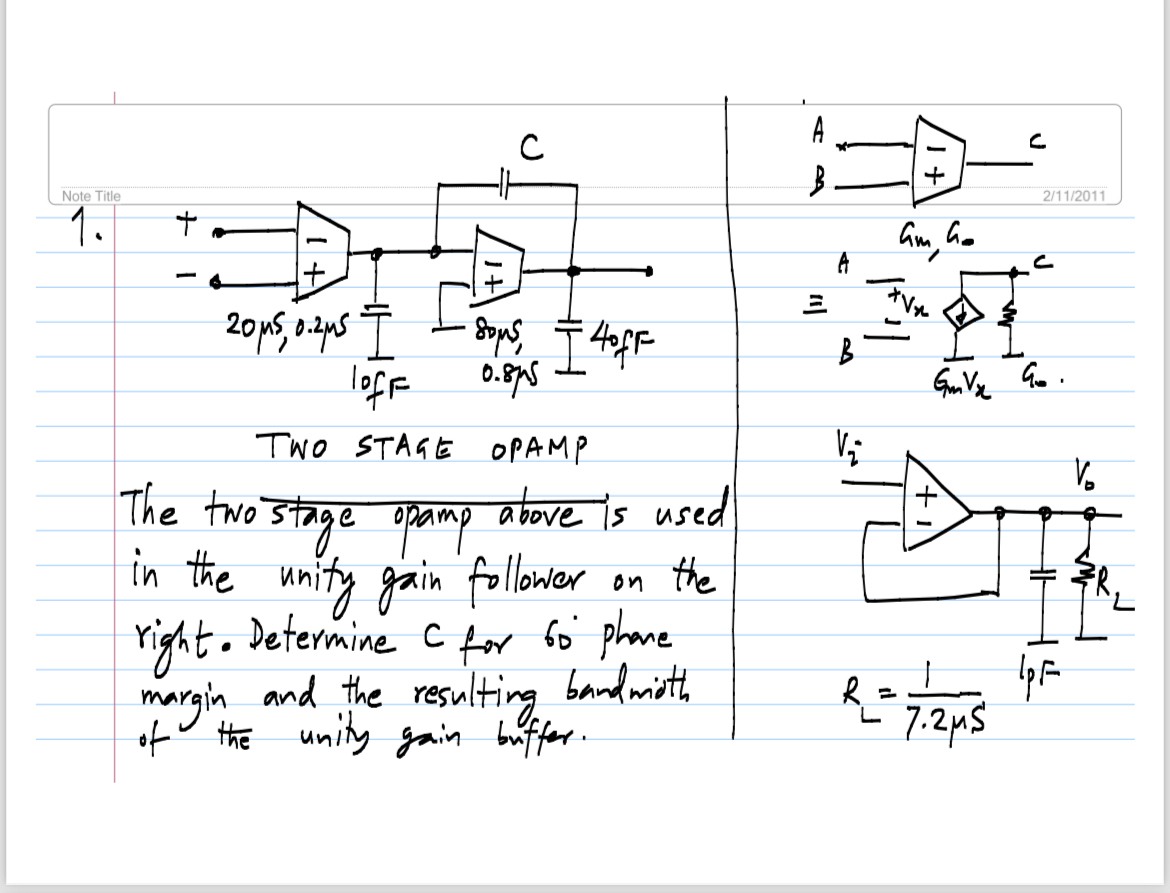 Note Title
2/11/2011
1.
+
-
C
-
+
20μS, 0.2μS
10fF
-
+
80μS,
0.8μS
40fF
TWO STAGE OPAMP
The two stage opamp above is used
in the unity gain follower on the
right. Determine C for 60° phase
margin and the resulting bandwidth
of the unity gain buffer.
A
B
-
+
C
Gm, Go
≡
A
B
+
Vx
-
C
GmVx
Go.
Vi
+
-
Vo
RL
1pF
RL = 1/7.2μS